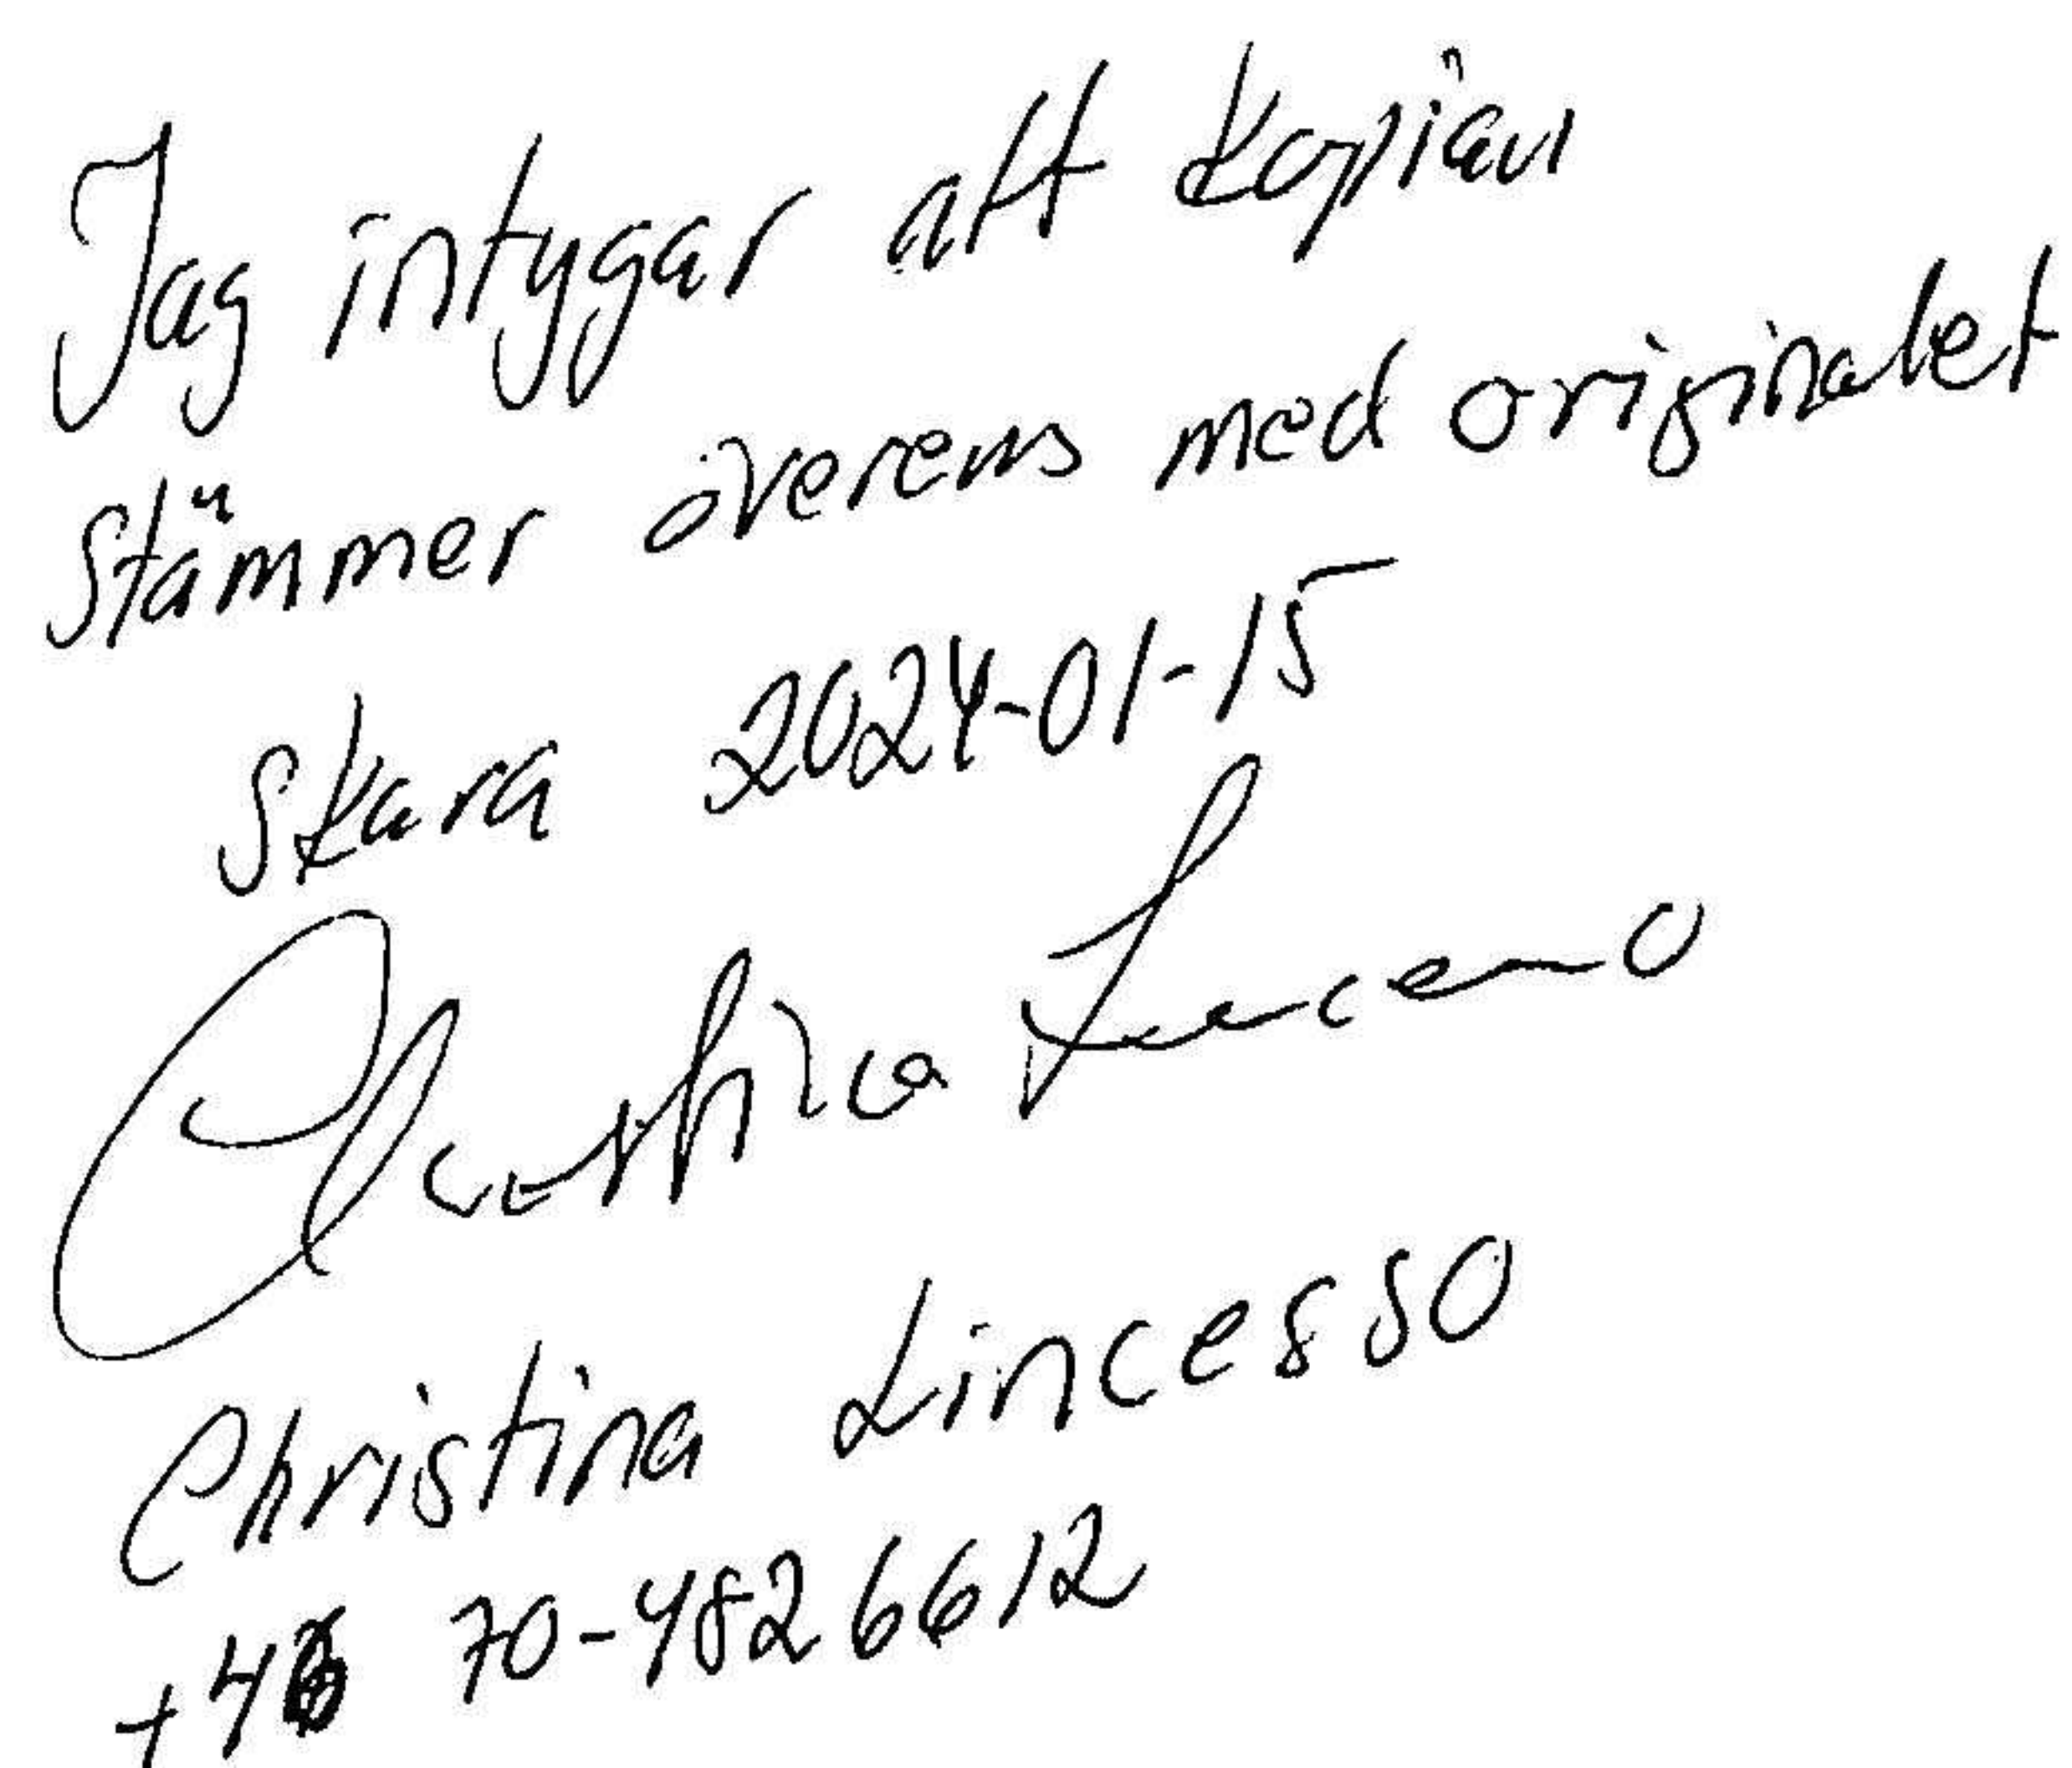 Jag intygar att kopian
stämmer överens med originalet
Skara 2024-01-15
Christina
Christina Lincesso
+46 70-482 6612